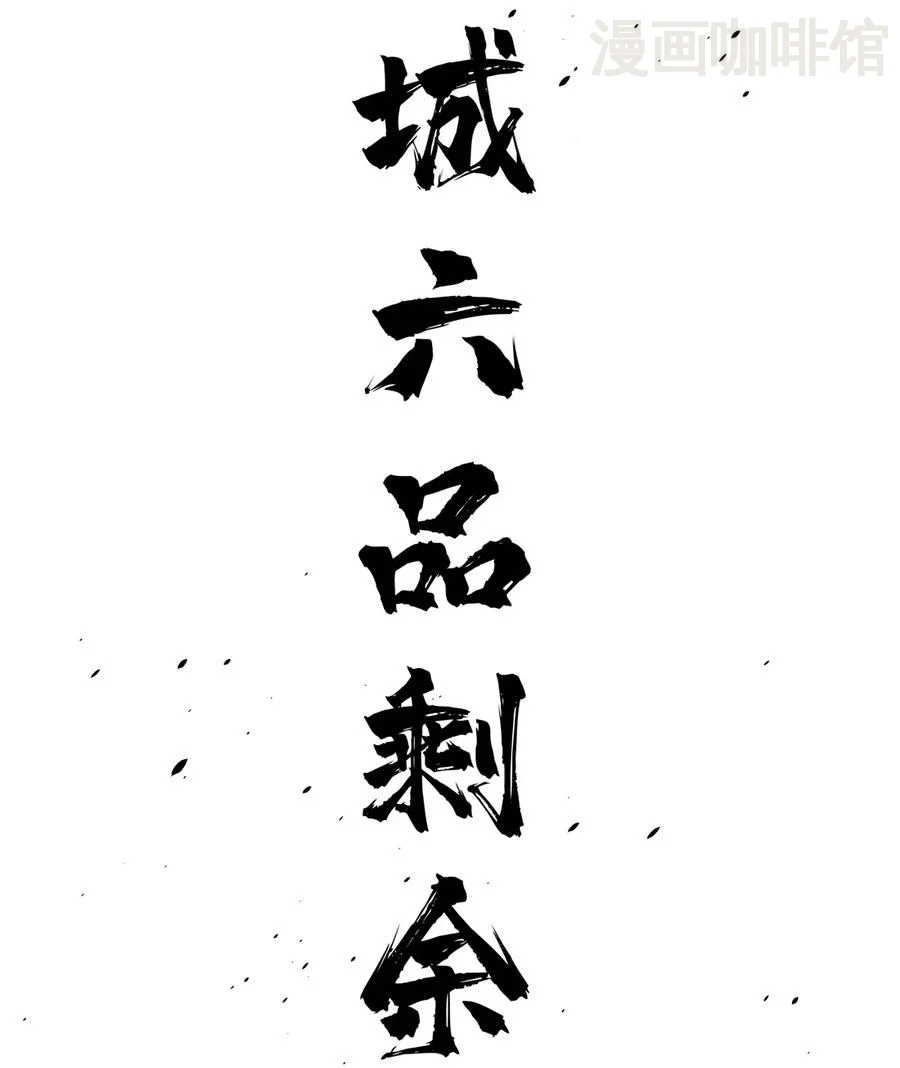 漫画咖啡馆
城六品剩余